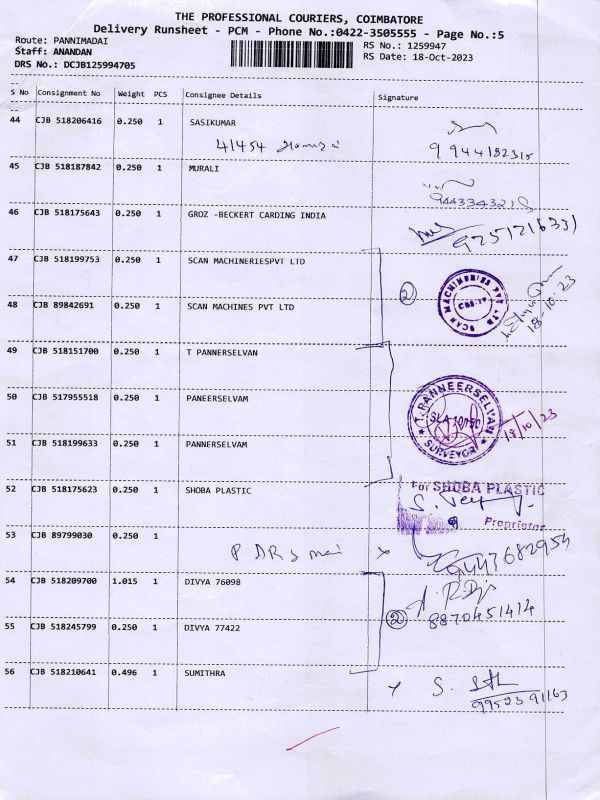 THE PROFESSIONAL COURIERS, COIMBATORE
Delivery Runsheet - PCM - Phone No.:0422-3505555 - Page No.:5
Route: PANNIMADAI
RS No.: 1259947
Staff: ANANDAN
RS Date: 18-Oct-2023
DRS No.: DCJB125994705
S No Consignment No Weight PCS Consignee Details Signature
44 CJB 518206416 0.250 1 SASIKUMAR
41/454
45 CJB 518187842 0.250 1 MURALI
46 CJB 518175643 0.250 1 GROZ -BECKERT CARDING INDIA
9251216331
47 CJB 518199753 0.250 1 SCAN MACHINERIESPVT LTD
2
18-10-23
48 CJB 89842691 0.250 1 SCAN MACHINES PVT LTD
49 CJB 518151700 0.250 1 T PANNERSELVAN
50 CJB 517955518 0.250 1 PANEERSELVAM
T. PANNEERSELVAN
SURVEYOR
18/10/23
51 CJB 518199633 0.250 1 PANNERSELVAM
52 CJB 518175623 0.250 1 SHOBA PLASTIC
For SHOBA PLASTIC
Proprietor
53 CJB 89799030 0.250 1
9447682954
54 CJB 518209700 1.015 1 DIVYA 76098
2
8870451414
55 CJB 518245799 0.250 1 DIVYA 77422
56 CJB 518210641 0.496 1 SUMITHRA
9952391163